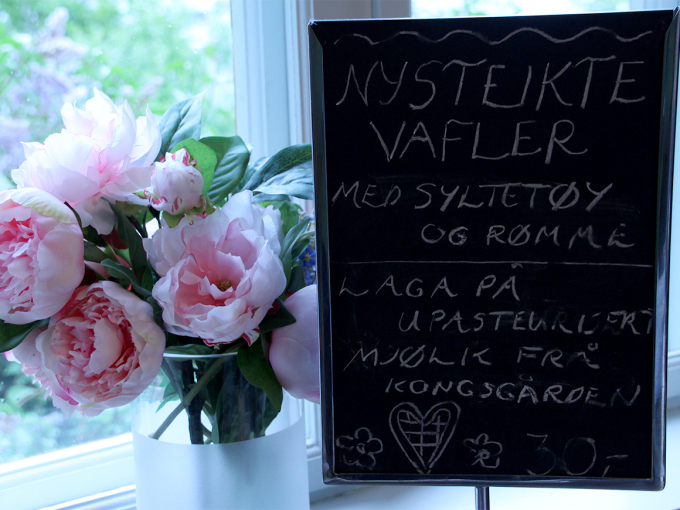 NYSTEIKTE
VAFLER
MED SYLTETØY
OG RØMME
LAGA PÅ
UPASTEURISERT
MJØLK FRÅ
KONGSGÅRDEN
30,-